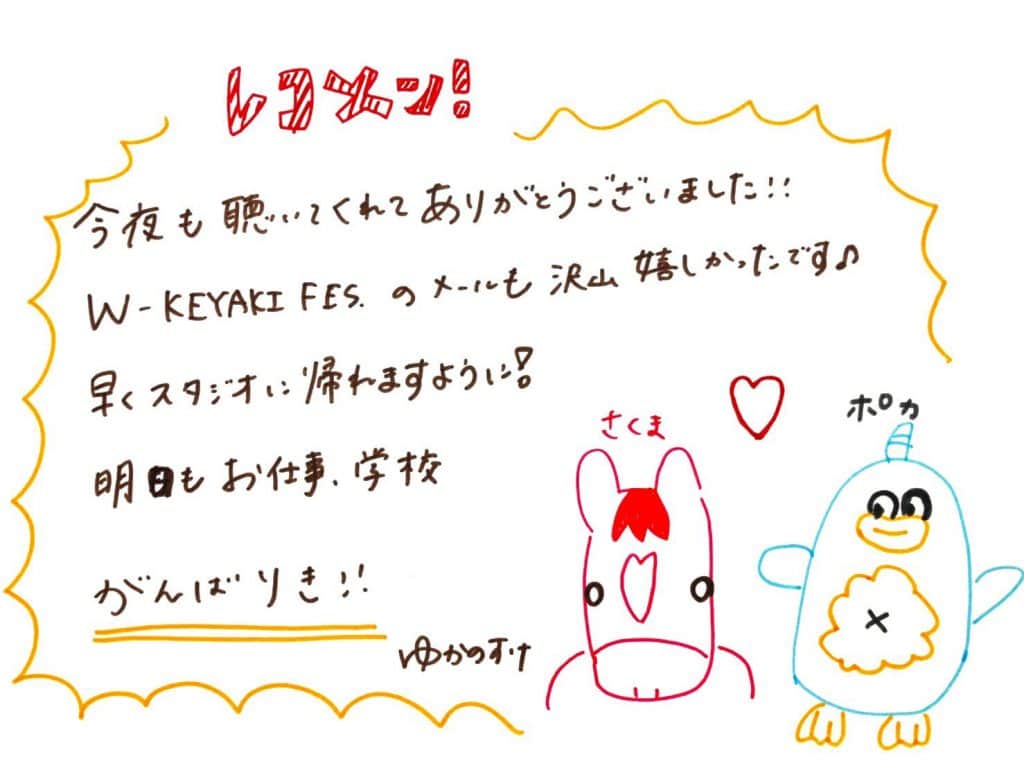 レコメン!
今夜も聴いてくれてありがとうございました!!
W-KEYAKI FES.のメールも沢山嬉しかったです♪
早くスタジオに帰れますように!
明日もお仕事、学校
がんばりき!!
ゆかのすけ
さくま
ポカ